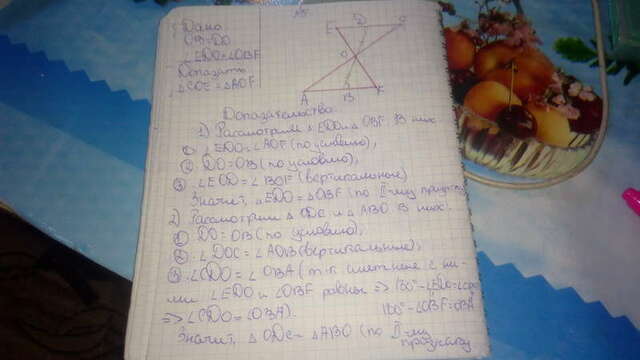 Дано:
OB=DO
∠EDO=∠OBF
Доказать:
△COE=△AOF
E
D
C
O
A
B
F
Доказательство:
1) Рассмотрим △EDO и △OBF. В них:
① ∠EDO=∠AOF (по условию),
② DO=OB (по условию),
③ ∠EOD=∠BOF (вертикальные)
Значит, △EDO=△OBF (по II-му признаку)
2) Рассмотрим △ODC и △ABO. В них:
① DO=OB (по условию),
② ∠DOC=∠AOB (вертикальные),
③ ∠CDO=∠OBA (т.к. смежные ∠ ни-
ми ∠EDO и ∠OBF равны => 180°-∠EDO=∠CDO
=> ∠CDO=∠OBA).
180°-∠OBF=OBA
Значит, △ODC=△ABO (по II-му
признаку